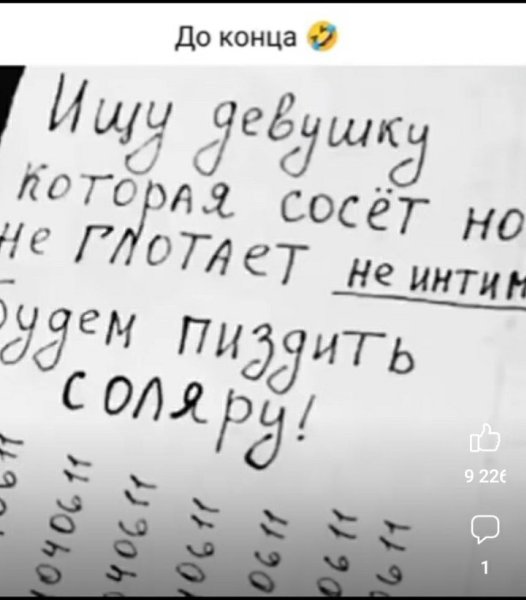 До конца 🤣
Ищу девушку
которая сосёт но
не глотает не интим
будем пиздить
соляру!
0611
040611
040611
0611
0611
0611
0611
9 226
1